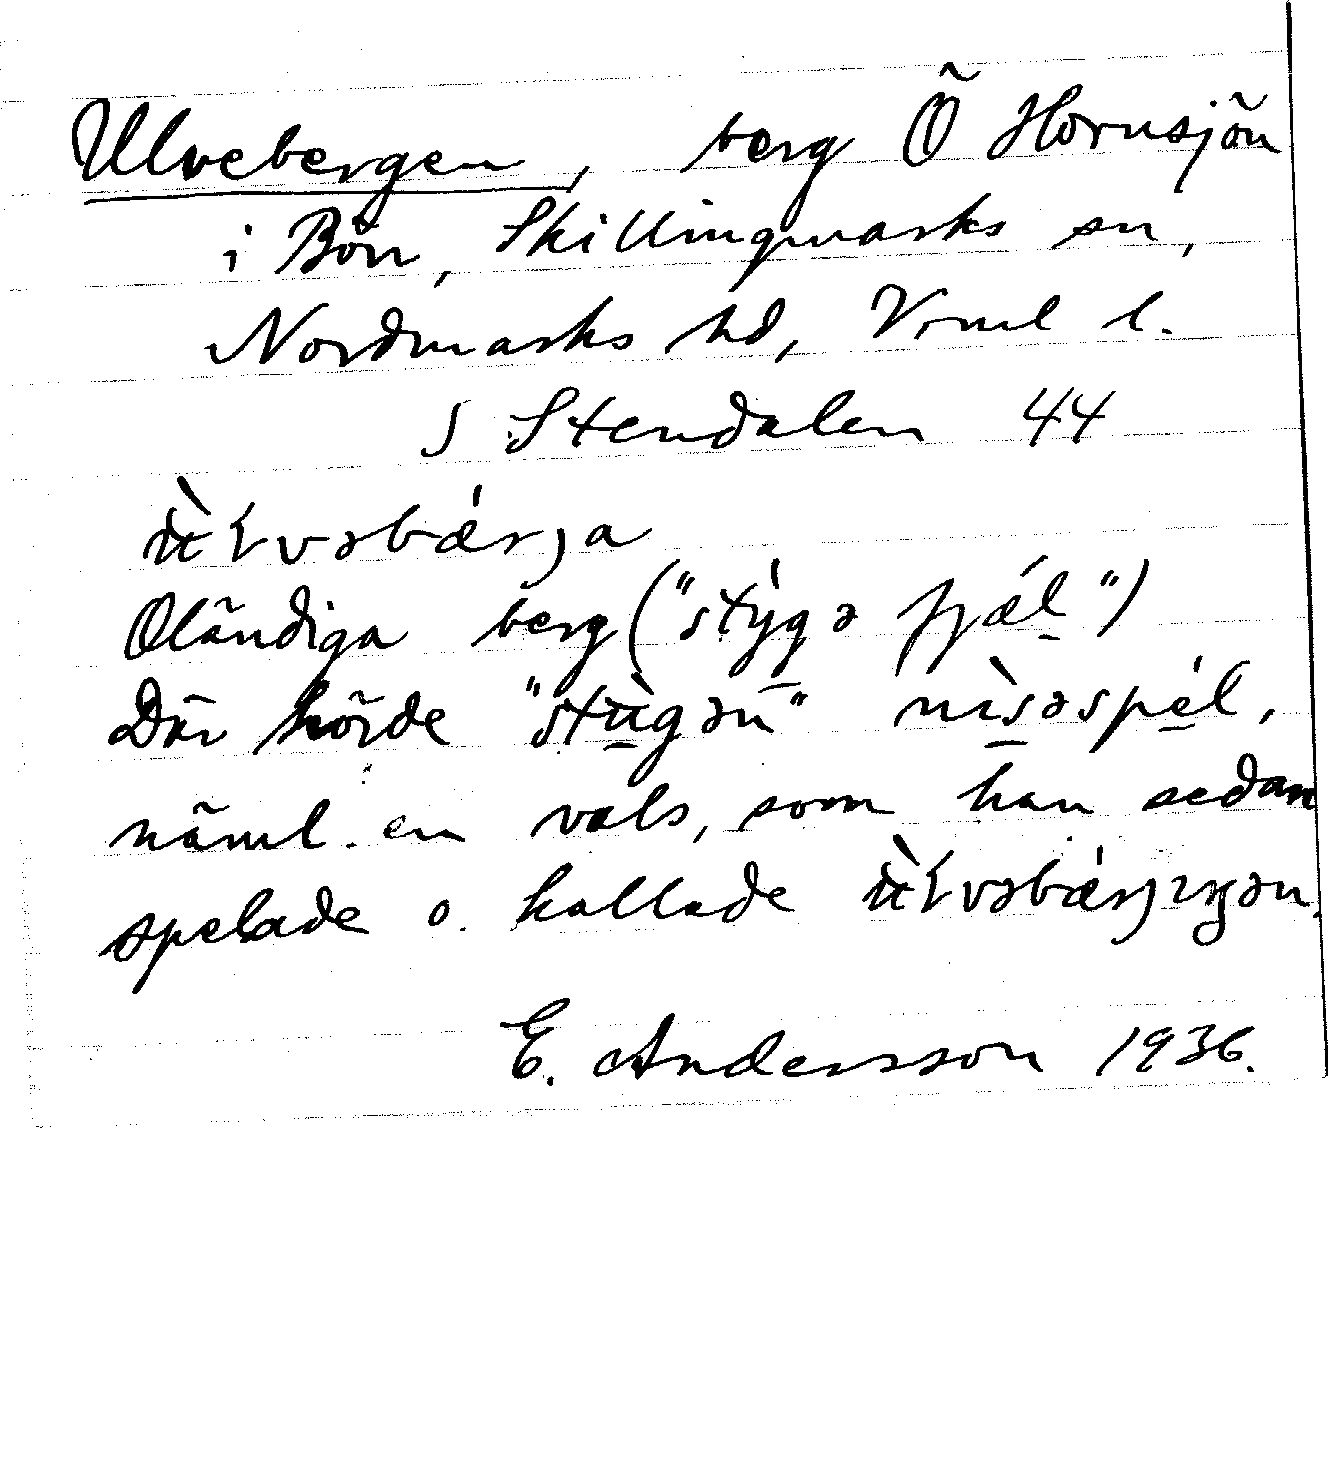 Ulvebergen, berg Ö Hornsjön
i Bön, Skillingmarks sn,
Nordmarks hd, Vrml l.
S Stendalen 44
ʉ̀ɽvəbǽrja
Oländiga berg ("stýgə fjǽl")
Där hörde "stùgən" nìsəspél,
näml. en vals, som han sedan
spelade o. kallade ʉ̀ɽvəbǽrjıŋən.
E. Andersson 1936.